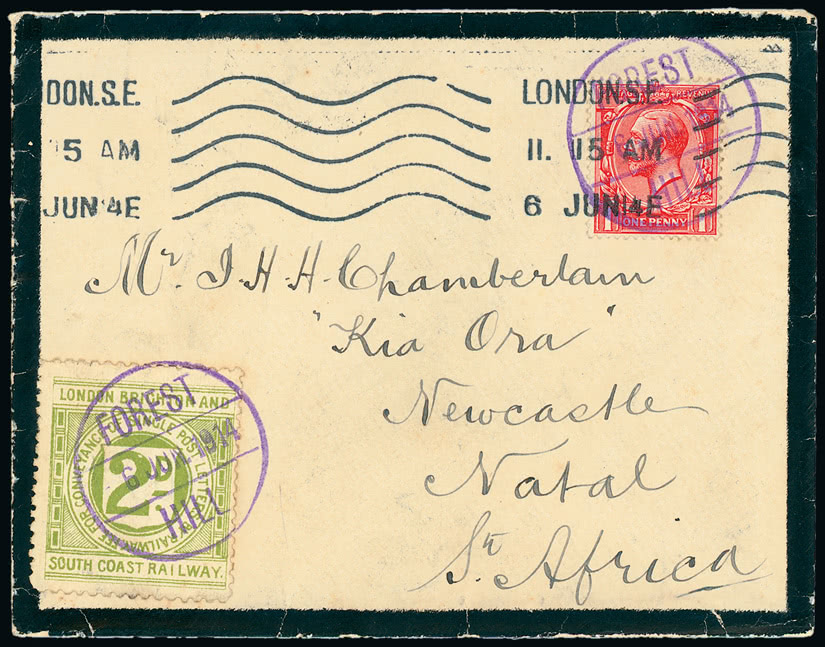 DON.S.E. LONDON.S.E.
15 AM 11. 15 AM
JUN 14E 6 JUN 14E
FOREST
HILL
POSTAGE REVENUE
ONE PENNY
1 1
Mr. J. H. H. Chamberlain
"Kia Ora"
Newcastle
Natal
Sth. Africa
LONDON BRIGHTON AND
FEE FOR CONVEYANCE OF SINGLE POST LETTER BY RAILWAY
2D
SOUTH COAST RAILWAY.
FOREST
6 JUN. 1914
HILL